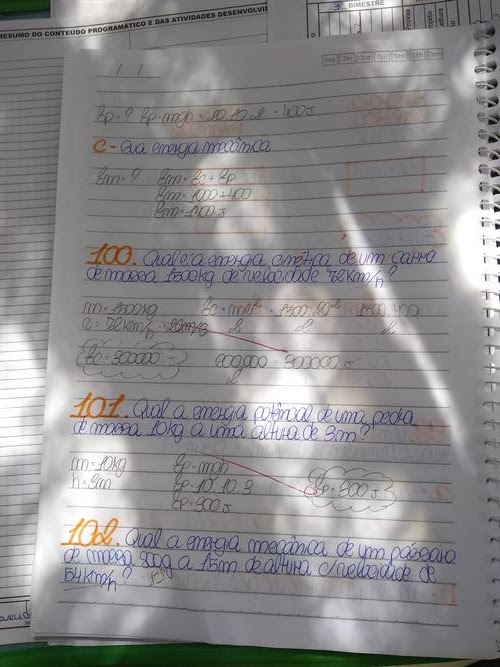 RESUMO DO CONTEÚDO PROGRAMÁTICO E DAS ATIVIDADES DESENVOLVI
BIMESTRE
Provas
Ep=? Ep=mgh = 20.10.2 = 400J
C- Sua energia mecânica
Em=? Em=Ec+Ep
Em=1000+400
Em=1400J
100. Qual é a energia cinética de um carro
de massa 1500kg de velocidade 72km/h?
m=1500kg Ec=mv² = 1500.20² = 1500.400
v=72km/h = 20m/s 2 2 2
Ec=300000 600.000 = 300000J
2
101. Qual a energia potencial de uma pedra
de massa 10kg a uma altura de 3m?
m=10kg Ep=mgh
h=3m Ep=10.10.3 Ep=300J
Ep=300J
102. Qual a energia mecânica de um pássaro
de massa 300g a 15m de altura c/ velocidade de
54km/h?